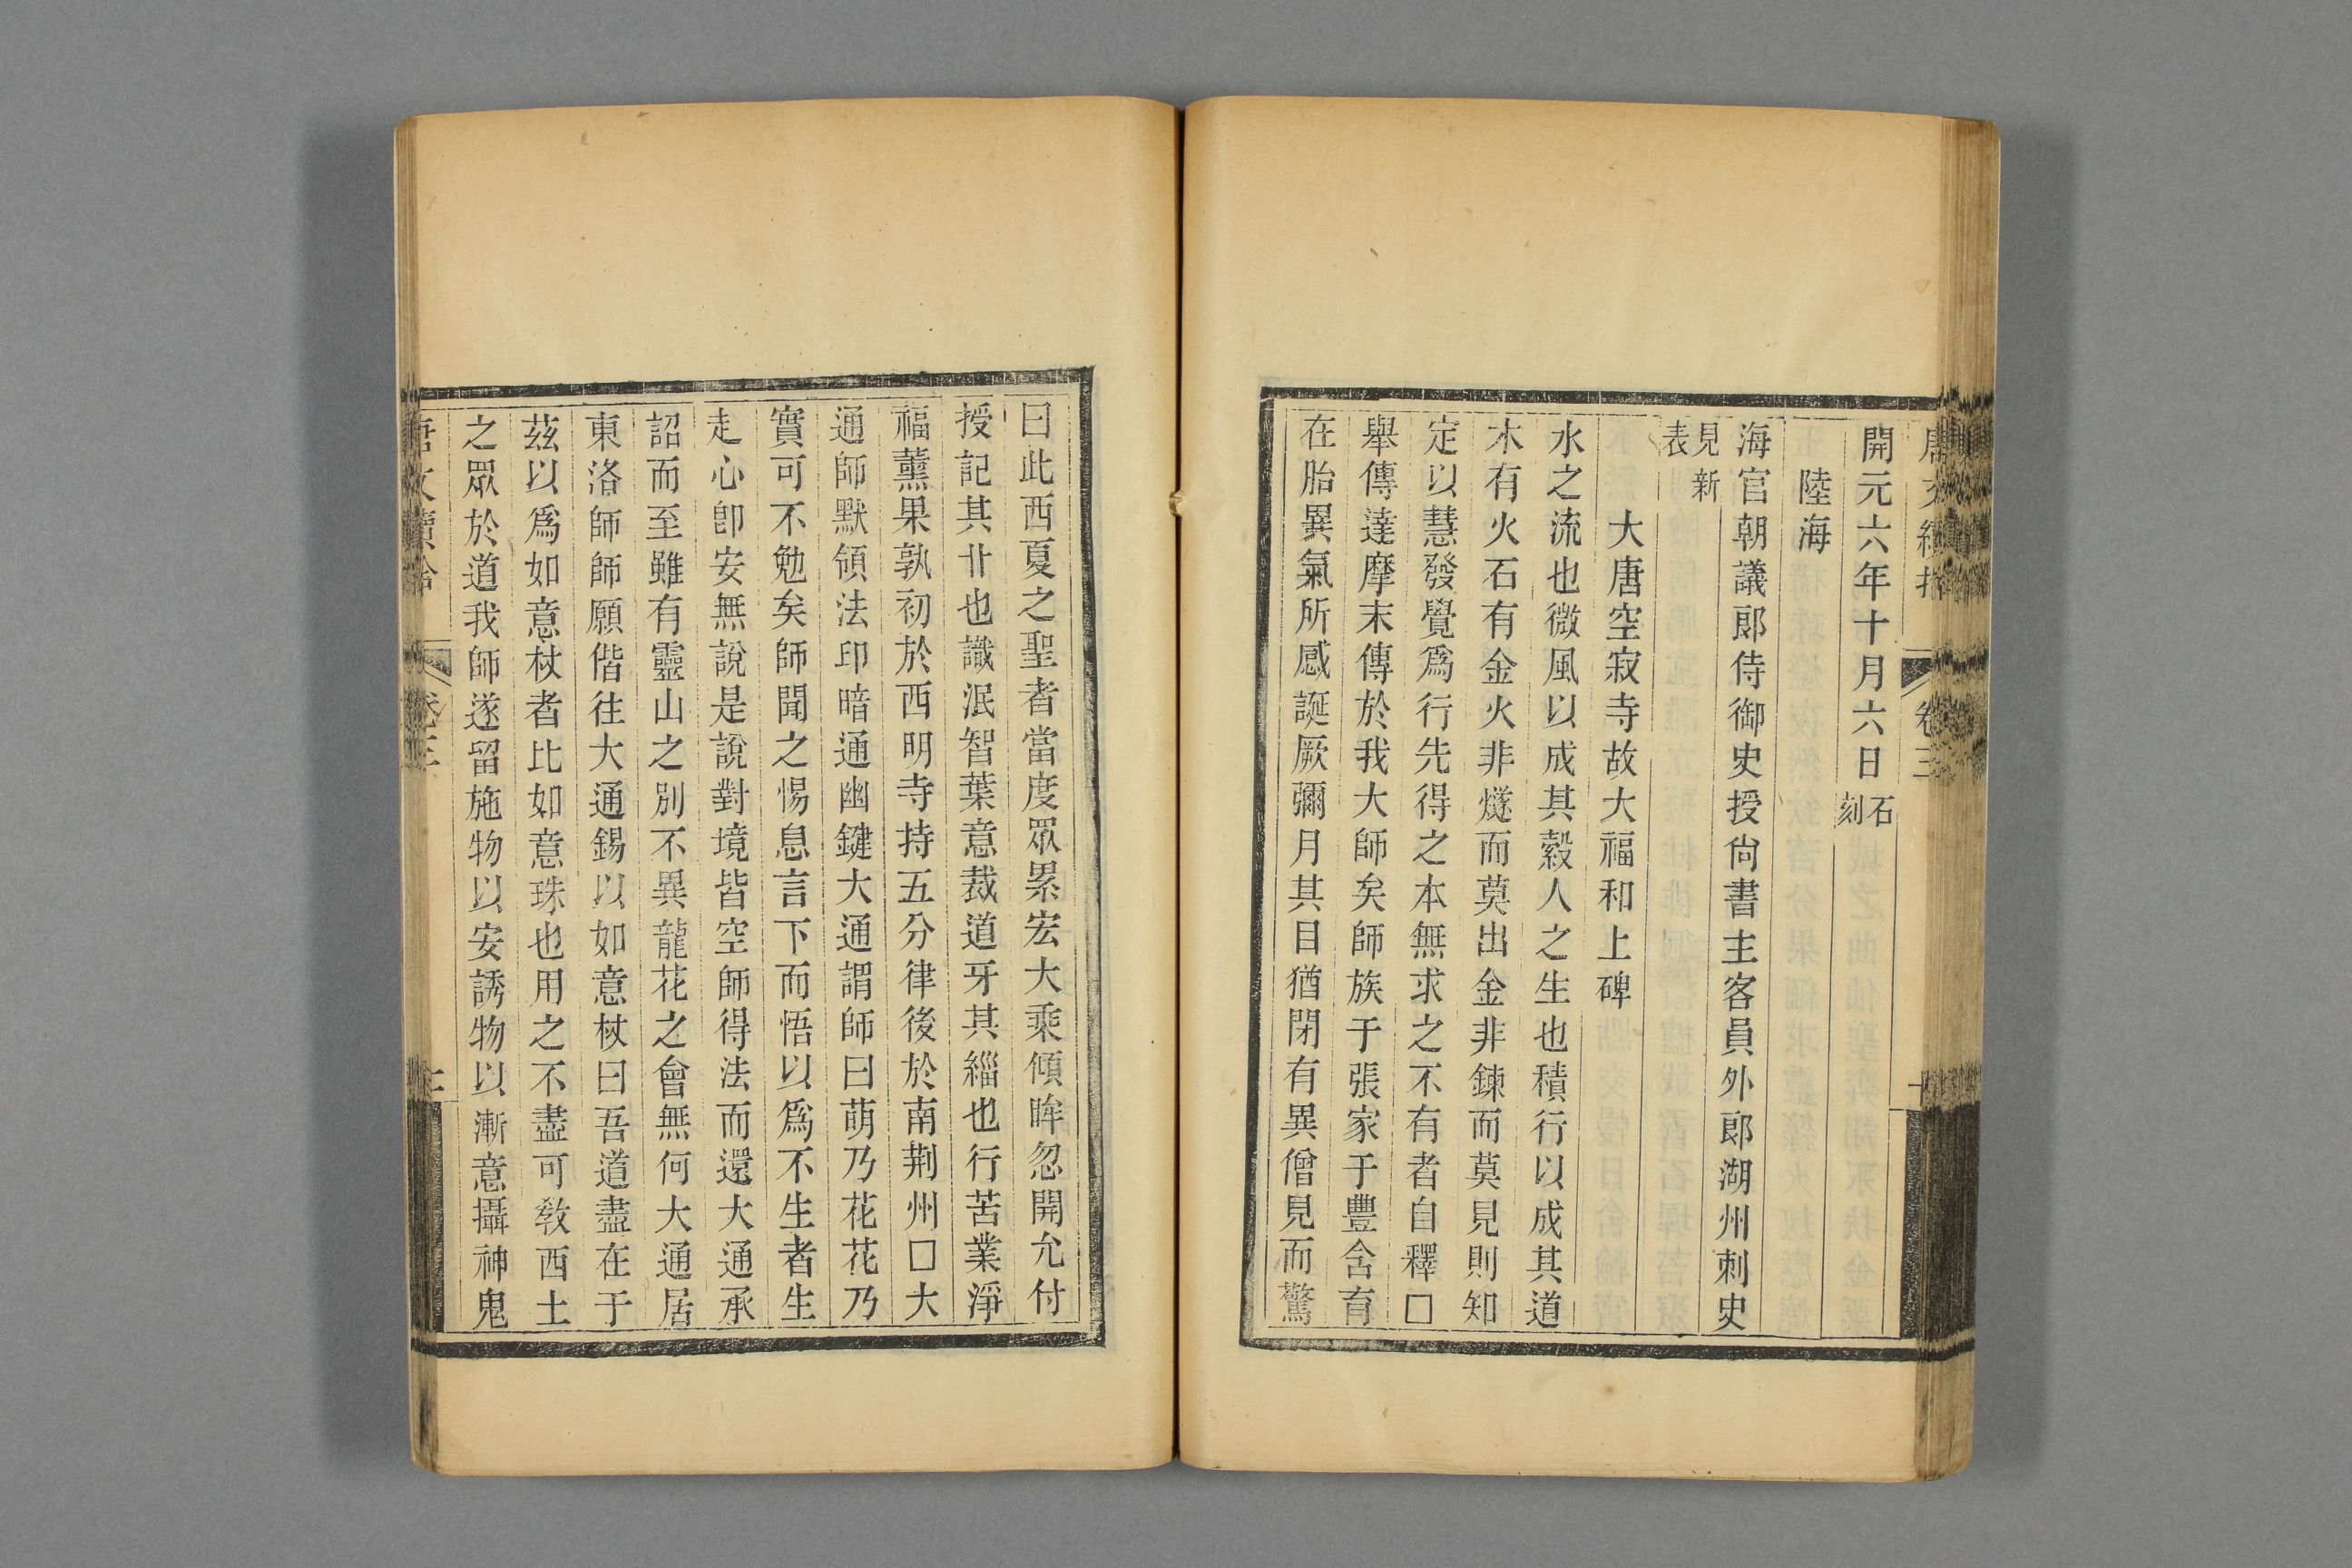 開元六年十月六日石刻
陸海
海官朝議郞侍御史授尙書主客員外郞湖州刺史
見新表
大唐空寂寺故大福和上碑
水之流也微風以成其縠人之生也積行以成其道
木有火石有金火非燧而莫出金非鍊而莫見則知
定以慧發覺爲行先得之本無求之不有者自釋□
舉傳達摩末傳於我大師矣師族于張家于豐舍育
在胎異氣所感誕厥彌月其目猶閉有異僧見而驚
曰此西夏之聖者當度眾累宏大乘傾眸忽開允付
授記其卄也識泯智葉意裁道牙其緇也行苦業淨
福薰果孰初於西明寺持五分律後於南荆州□大
通師默領法印暗通幽鍵大通謂師曰萌乃花花乃
實可不勉矣師聞之惕息言下而悟以爲不生者生
走心卽安無說是說對境皆空師得法而還大通承
詔而至雖有靈山之別不異龍花之會無何大通居
東洛師師願偕往大通錫以如意杖曰吾道盡在于
茲以爲如意杖者比如意珠也用之不盡可敎西土
之眾於道我師遂留施物以安誘物以漸意攝神鬼
卷三